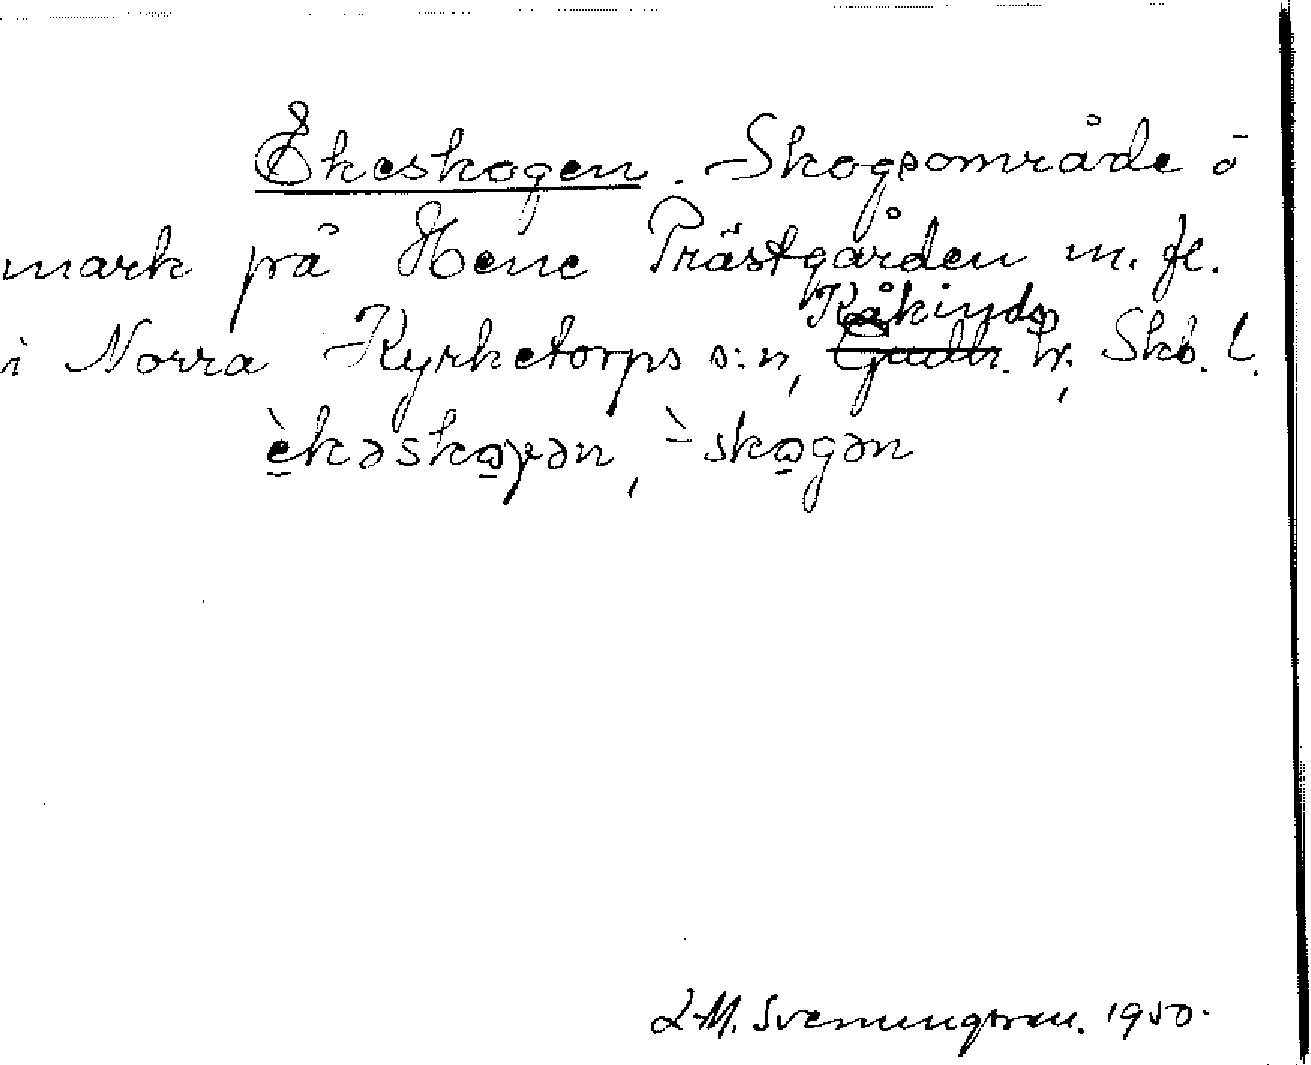 Ekeskogen. Skogsområde å
mark på Hene Prästgården m. fl.
Kåkinds
i Norra Kyrketorps s:n, Gudh. hr, Skb. l.
èkəskoɣən, `-skogən
L-M. Svenungsson. 1950.